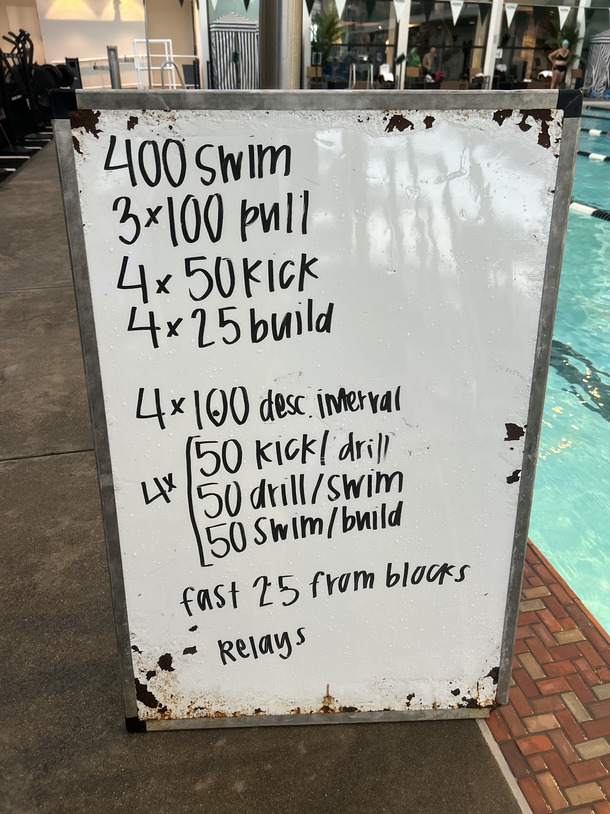 400 swim
3x100 pull
4x 50 kick
4x25 build
4x100 desc. interval
4x
50 kick/drill
50 drill/swim
50 swim/build
fast 25 from blocks
Relays